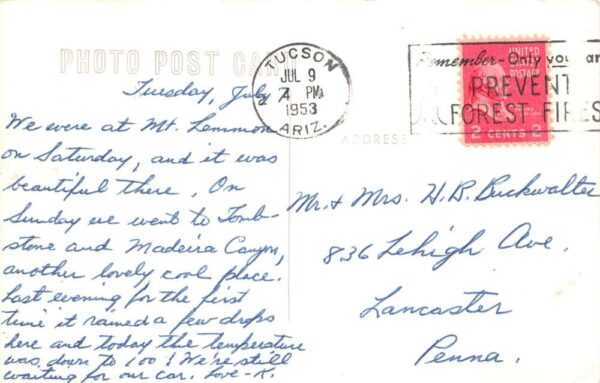 PHOTO POST CARD
TUCSON
JUL 9
4 PM
1953
ARIZ.
Remember-Only you
PREVENT
FOREST FIRES
UNITED
POSTAGE
2 CENTS 2
ADDRESS
Tuesday, July 7
We were at Mt. Lemmon
on Saturday, and it was
beautiful there. On
Sunday we went to Tomb-
stone and Madeira Canyon,
another lovely cool place.
Last evening for the first
time it rained a few drops
here and today the temperature
was down to 100! We're still
waiting for our car. Love - K.
Mr. & Mrs. H. B. Buckwalter
836 Lehigh Ave.
Lancaster
Penna.